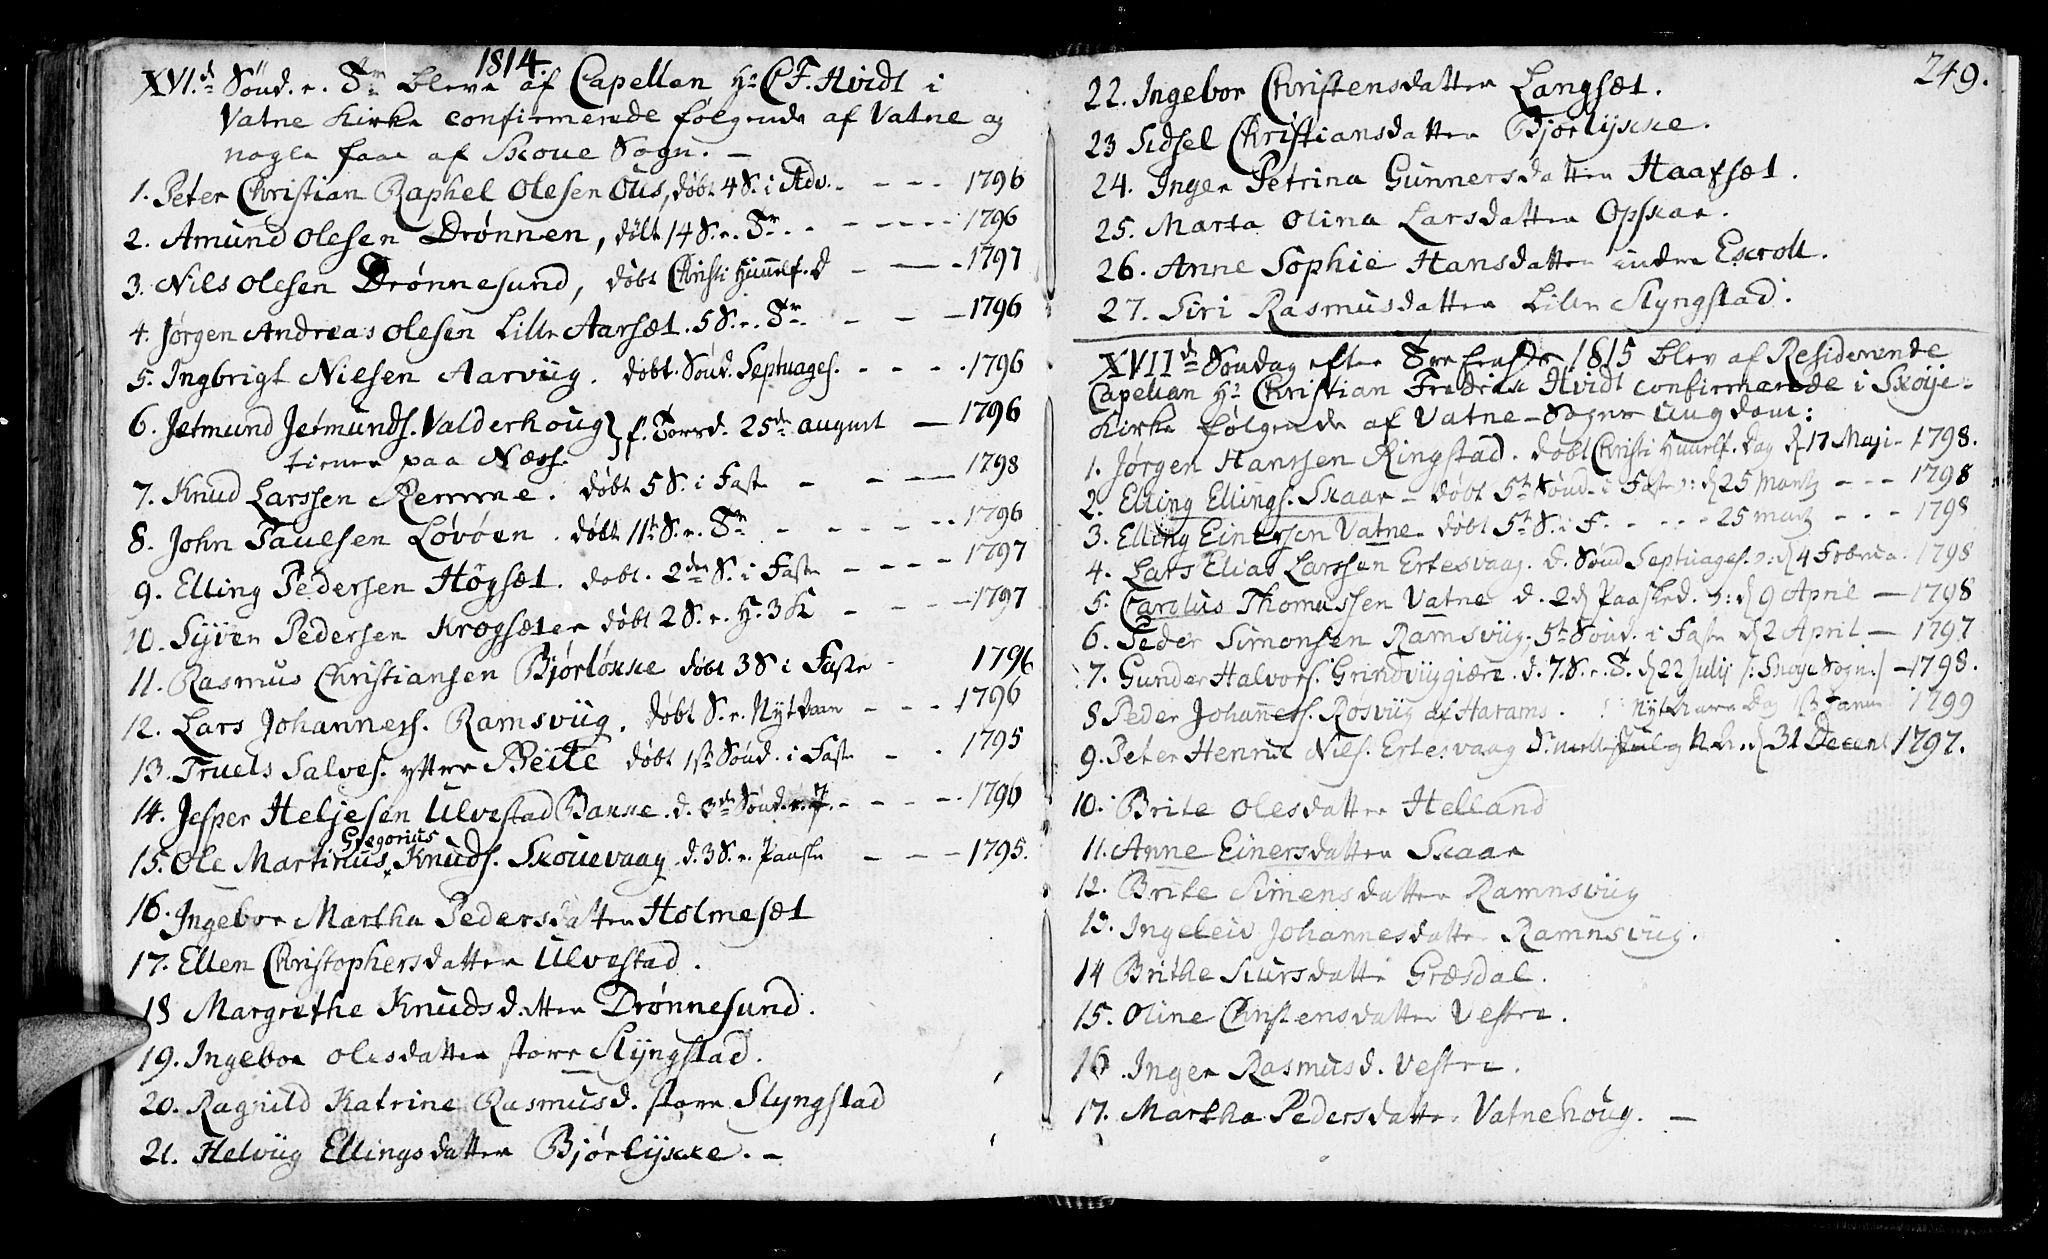 1814.
XVI.d Sönd. e. Tr. bleve af Capellan Hr. C F. Hvidt i
Vatne Kirke confirmerede følgende af Vatne og
nogle faae af Skoue Sogn. —
1. Peter Christian Raphel Olesen Ous, døbt 4 S. i Adv. - - - - 1796
2. Amund Olesen Drønnen, døbt 14 S. e. Tr. - - - - - 1796
3. Nils Olesen Drønnesund, døbt Christi Himelf. d - — - 1797
4. Jørgen Andreas Olesen Lille Aarsæt. 5 S. e. Tr. - - — 1796
5. Ingbrigt Nielsen Aarviig. døbt Sönd. Septuages. - - - - 1796
6. Jetmund Jetmunds. Valderhoug f. Torsd. 25de august — 1796
tiener paa Næss.
7. Knud Larssen Remme. døbt 5 S. i Faste - - — 1798
8. John Paulsen Løvøen. døbt 11te S. e. Tr - - - - - - 1796
9. Elling Pedersen Högsæt. døbt. 2den S. i Faste - - - - 1797
10. Syver Pedersen Krogsæter døbt 2 S. e. H. 3 K - - - — 1797
11. Rasmus Christiansen Bjørløkke døbt 3 S i Faste - 1796
12. Lars Johanness. Ramsviig. døbt S. e. Nytaar - - - 1796
13. Truels Salves. yttre Beite døbt 1ste Sönd. i Faste - . 1795
14. Jesper Heljesen Ulvestad Bakke. d. 3de Sönd. e. - - - - 1796
Gregorius
15. Ole Martinus Knuds. Skouevaag d. 3 S. e. Paaske - - — 1795.
16. Ingebor Martha Pedersdatter Holmesæt
17. Ellen Christophersdatter Ulvestad.
18 Margrethe Knudsdatter Drønnesund.
19. Ingebor Olesdatter store Slyngstad.
20. Ragnild Katrine Rasmusd. store Slyngstad
21. Helviig Ellingsdatter Bjørlykke. -
249.
22. Ingebor Christensdatter Langsæt.
23 Sidsel Christiansdatter Bjørlykke.
24. Inger Petrina Gunnersdatter Haafsæt.
25. Marta Olina Larsdatter Opskar.
26. Anne Sophie Hansdatter indre Exroll.
27. Siri Rasmusdatter Lille Slyngstad.
XVIIde Søndag efter 1815 blev af Residerende
Capellan Hr. Christian Fredrik Hvidt confirmerede i Skøije-
Kirke følgende af Vatne-Sogns Ungdom:
1. Jørgen Hanssen Ringstad. døbt Christi Himelf. Dag d 17 Maji - 1798.
2. Elling Ellings. Skaar - døbt 5te Sönd. i Faste ɔ: d 25 Martz - - - 1798
3. Elling Einersen Vatne. døbt 5te S. i F. - - - - 25 martz - - - 1798
4. Lars Elias Larssen Ertesvaag. d. Sönd Septuages. ɔ: d 4 Februa. 1798
5. Carolus Thomassen Vatne d. 2d Paasked. ɔ: d 9 April — 1798
6. Peder Simonsen Ramsviig. 5te Sönd. i Faste d 2 April — 1797
7. Gunder Halvors. Grindviiggiære. d. 7. S. e. T. d 22 Julij /: Skøye Sogn :/ — 1798.
8 Peder Johanness. Røsviig af Harams. Nytaars Dag 1799
9. Peter Henric Niels. Ertesvaag N. A. d 31 Decent 1797.
10. Brite Olesdatter Helland
11. Anne Einersdatter Skaar
12. Brite Simensdatter Ramnsviig
13. Ingeleiv Johannesdatter Ramnsviig.
14 Brithe Siursdatte Græsdal.
15. Oline Christensdatter Vestre.
16. Inger Rasmusd. Vestre.
17. Martha Pedersdatter Vatnehoug. —